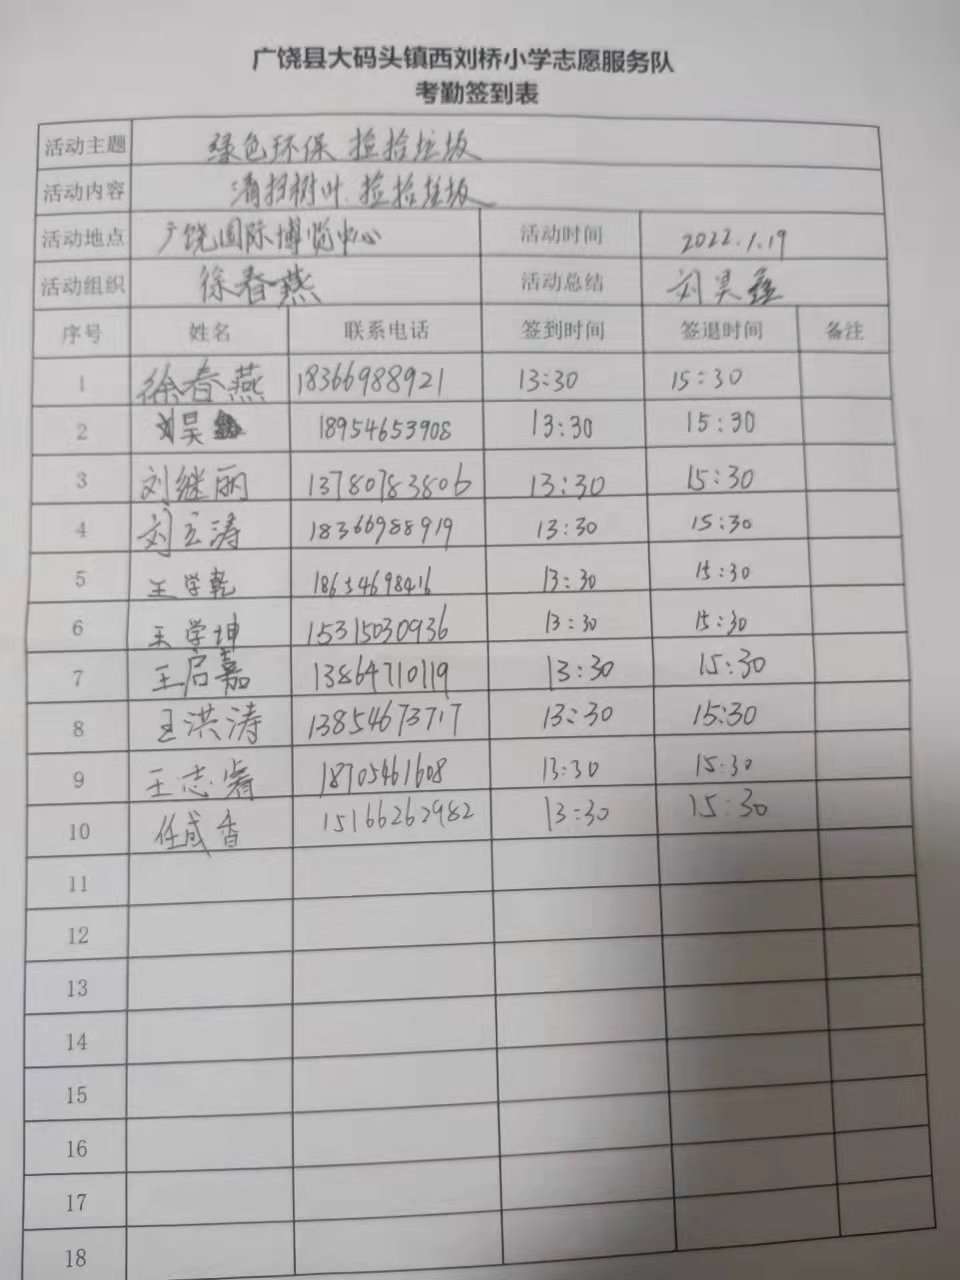 广饶县大码头镇西刘桥小学志愿服务队
考勤签到表
活动主题 绿色环保 捡拾垃圾
活动内容 清扫树叶.捡拾垃圾
活动地点 广饶国际博览中心 活动时间 2022.1.19
活动组织 徐春燕 活动总结 刘昊鑫
序号 姓名 联系电话 签到时间 签退时间 备注
1 徐春燕 18366988921 13:30 15:30
2 刘昊鑫 18954653908 13:30 15:30
3 刘继丽 13780783806 13:30 15:30
4 刘玄涛 18366988919 13:30 15:30
5 王学乾 18654698416 13:30 15:30
6 王学坤 15315030936 13:30 15:30
7 王启嘉 13864710119 13:30 15:30
8 王洪涛 13854673717 13:30 15:30
9 王志睿 18705461608 13:30 15:30
10 任成香 15166262982 13:30 15:30
11
12
13
14
15
16
17
18